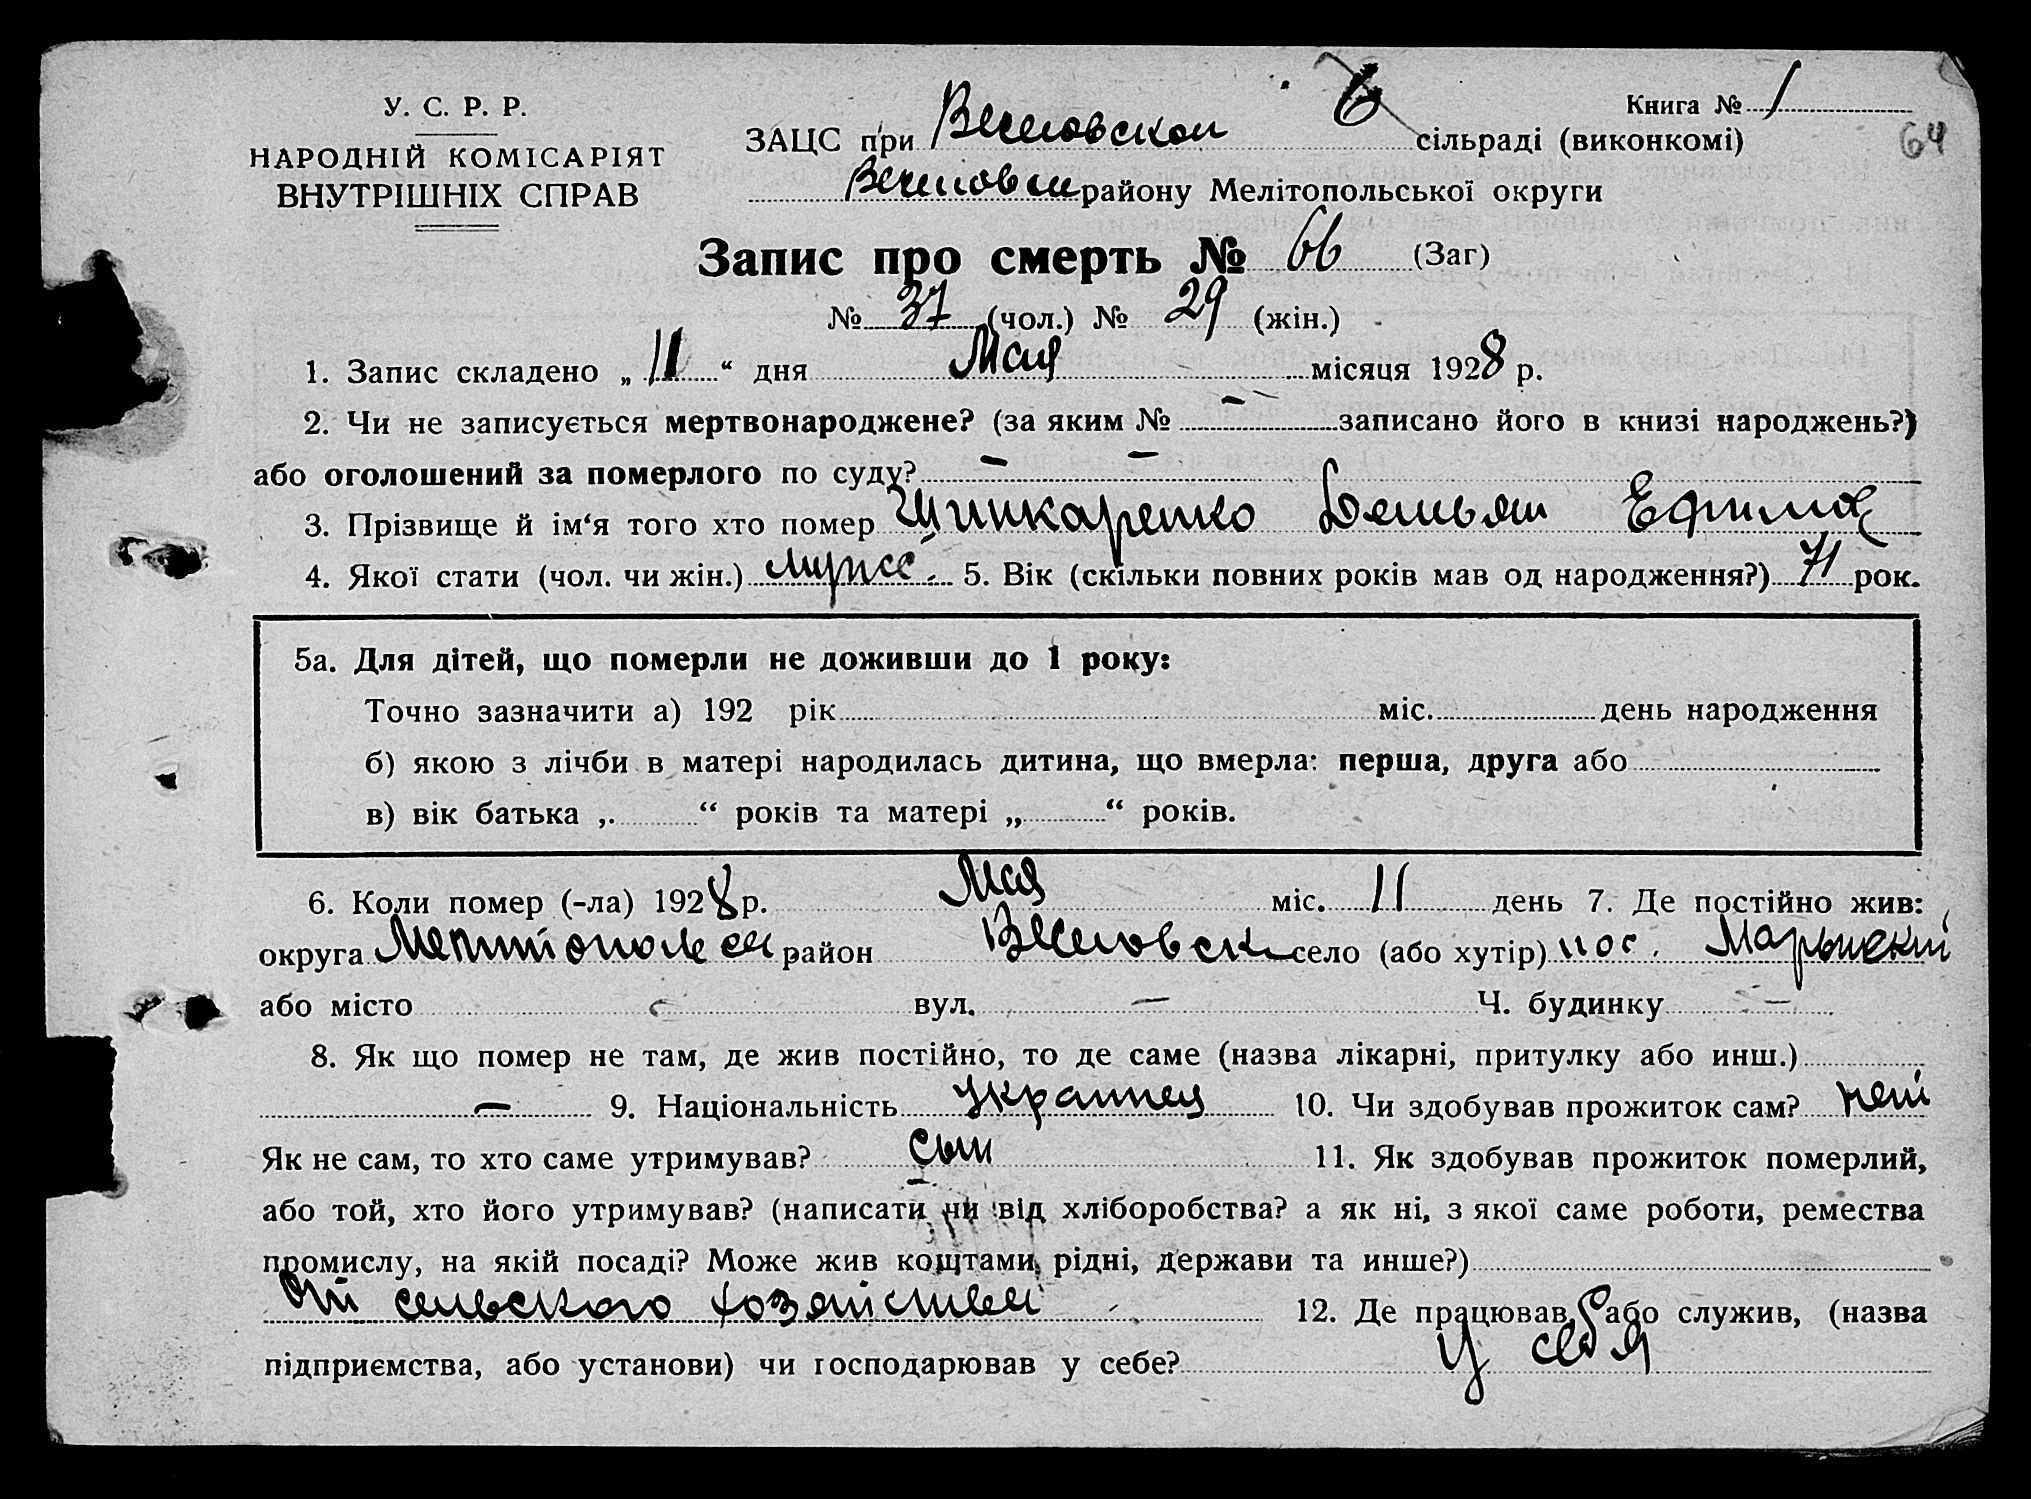 У. С. Р. Р.
НАРОДНІЙ КОМІСАРІЯТ
ВНУТРІШНІХ СПРАВ
Книга № 1
64
ЗАЦС при Веселовской сільраді (виконкомі)
Веселовск району Мелітопольської округи
Запис про смерть № 66 (Заг)
№ 37 (чол.) № 29 (жін.)
1. Запис складено „ 11 “ дня Мая місяця 1928 р.
2. Чи не записується мертвонароджене? (за яким № – записано його в книзі народжень?)
або оголошений за померлого по суду? – –
3. Прізвище й ім‘я того хто помер Шинкаренко Демьян Ефимов
4. Якої стати (чол. чи жін.) мужс. 5. Вік (скільки повних років мав од народження?) 71 рок.
5а. Для дітей, що померли не доживши до 1 року:
Точно зазначити а) 192 рік міс. день народження
б) якою з лічби в матері народилась дитина, що вмерла: перша, друга або
в) вік батька „ “ років та матері „ “ років.
6. Коли помер (-ла) 1928 р. Мая міс. 11 день 7. Де постійно жив:
округа Мелитопольск район Веселовск село (або хутір) пос. Марьинский
або місто – вул. – Ч. будинку –
8. Як що помер не там, де жив постійно, то де саме (назва лікарні, притулку або инш.)
– 9. Національність украинец 10. Чи здобував прожиток сам? нет
Як не сам, то хто саме утримував? сын 11. Як здобував прожиток померлий,
або той, хто його утримував? (написати чи від хліборобства? а як ні, з якої саме роботи, ремества
промислу, на якій посаді? Може жив коштами рідні, держави та инше?)
от сельского хозяйства 12. Де працював або служив, (назва
підприємства, або установи) чи господарював у себе? у себя